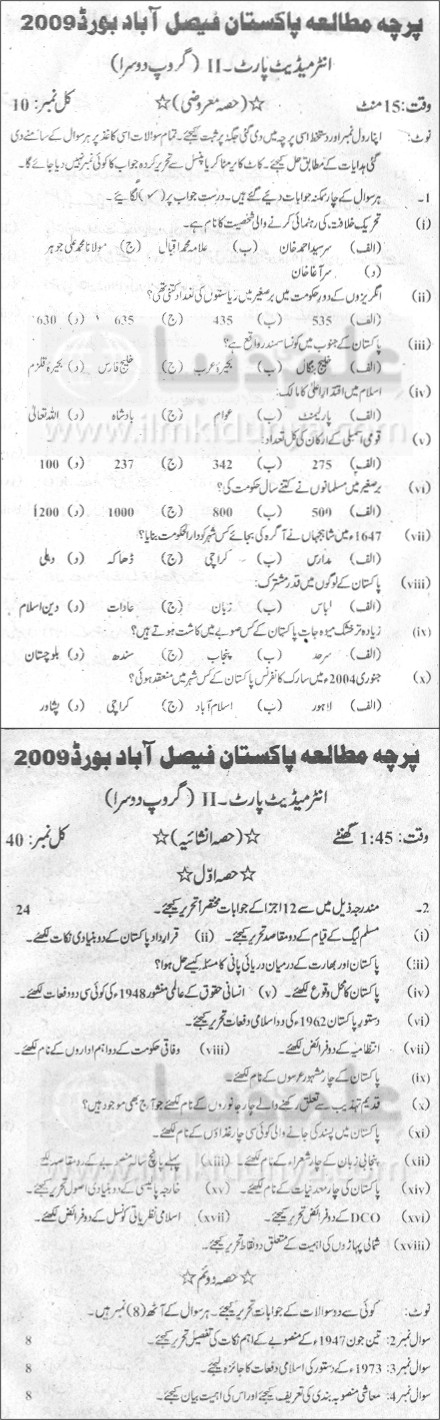 پرچہ مطالعہ پاکستان فیصل آباد بورڈ 2009
انٹرمیڈیٹ پارٹ ۔ II (گروپ دوسرا)
وقت: 15 منٹ ☆(حصہ معروضی)☆ کل نمبر: 10
نوٹ: اپنا رول نمبر اور دستخط اسی پرچہ میں دی گئی جگہ پر ثبت کیجئے۔ تمام سوالات اسی کاغذ پر ہر سوال کے سامنے دی
گئی ہدایات کے مطابق حل کیجئے۔ کاٹ کر یا مٹا کر یا پنسل سے تحریر کردہ جواب کا کوئی نمبر نہیں دیا جائے گا۔
1۔ ہر سوال کے چار ممکنہ جوابات دیئے گئے ہیں۔ درست جواب پر (✓) لگائیے۔
(i) تحریک خلافت کی رہنمائی کرنے والی شخصیت کا نام ہے۔
(الف) سرسید احمد خان (ب) علامہ محمد اقبال (ج) مولانا محمد علی جوہر
(د) سر آغا خان
(ii) انگریزوں کے دور حکومت میں برصغیر میں ریاستوں کی تعداد کتنی تھی؟
(الف) 535 (ب) 435 (ج) 635 (د) 630
(iii) پاکستان کے جنوب میں کونسا سمندر واقع ہے؟
(الف) خلیج بنگال (ب) بحیرۂ عرب (ج) خلیج فارس (د) بحیرۂ قلزم
(iv) اسلام میں اقتدار اعلیٰ کا مالک:
(الف) پارلیمنٹ (ب) عوام (ج) بادشاہ (د) اللہ تعالیٰ
(v) قومی اسمبلی کے ارکان کی کل تعداد:
(الف) 275 (ب) 342 (ج) 237 (د) 100
(vi) برصغیر میں مسلمانوں نے کتنے سال حکومت کی؟
(الف) 509 (ب) 800 (ج) 1000 (د) 1200
(vii) 1647ء میں شاہجہاں نے آگرہ کی بجائے کس شہر کو دارالحکومت بنایا؟
(الف) مدارس (ب) کراچی (ج) ڈھاکہ (د) دہلی
(viii) پاکستان کے لوگوں میں قدر مشترک:
(الف) لباس (ب) زبان (ج) عادات (د) دین اسلام
(ix) زیادہ تر خشک میوہ جات پاکستان کے کس صوبے میں کاشت ہوتے ہیں؟
(الف) سرحد (ب) پنجاب (ج) سندھ (د) بلوچستان
(x) جنوری 2004ء میں سارک کانفرنس پاکستان کے کس شہر میں منعقد ہوئی؟
(الف) لاہور (ب) اسلام آباد (ج) کراچی (د) پشاور
پرچہ مطالعہ پاکستان فیصل آباد بورڈ 2009
انٹرمیڈیٹ پارٹ ۔ II (گروپ دوسرا)
وقت: 1:45 گھنٹے ☆(حصہ انشائیہ)☆ کل نمبر: 40
☆حصہ اوّل☆
2۔ مندرجہ ذیل میں سے 12 اجزا کے جوابات مختصراً تحریر کیجئے۔ 24
(i) مسلم لیگ کے قیام کے دو مقاصد تحریر کیجئے۔ (ii) قرارداد پاکستان کے دو بنیادی نکات لکھئے۔
(iii) پاکستان اور بھارت کے درمیان دریائی پانی کا مسئلہ کیسے حل ہوا؟
(iv) پاکستان کا محل وقوع لکھئے۔ (v) انسانی حقوق کے عالمی منشور 1948ء کی کوئی سی دو دفعات لکھئے۔
(vi) دستور پاکستان 1962ء کی دو اسلامی دفعات تحریر کیجئے۔
(vii) انتظامیہ کے دو فرائض لکھئے۔ (viii) وفاقی حکومت کے دو اہم اداروں کے نام لکھئے۔
(ix) پاکستان کے چار مشہور عرسوں کے نام لکھئے۔
(x) قدیم تہذیب سے تعلق رکھنے والے چار جانوروں کے نام لکھئے جو آج بھی موجود ہیں؟
(xi) پاکستان میں پسند کی جانے والی کوئی سی چار غذاؤں کے نام لکھئے۔
(xii) پنجابی زبان کے چار شعراء کے نام لکھئے۔ (xiii) پہلے پانچ سالہ منصوبے کے دو مقاصد لکھئے
(xiv) پاکستان کی چار معدنیات کے نام لکھئے۔ (xv) خارجہ پالیسی کے دو بنیادی اصول تحریر کیجئے۔
(xvi) DCO کے دو فرائض تحریر کیجئے۔ (xvii) اسلامی نظریاتی کونسل کے دو فرائض لکھئے۔
(xviii) شمالی پہاڑوں کی اہمیت کے متعلق دو نقاط تحریر کیجئے۔
☆حصہ دوئم☆
نوٹ: کوئی سے دو سوالات کے جوابات تحریر کیجئے۔ ہر سوال کے آٹھ (8) نمبر ہیں۔
سوال نمبر 2: تین جون 1947ء کے منصوبے کے اہم نکات کی تفصیل تحریر کیجئے۔ 8
سوال نمبر 3: 1973ء کے دستور کی اسلامی دفعات کا جائزہ لیجئے۔ 8
سوال نمبر 4: معاشی منصوبہ بندی کی تعریف کیجئے اور اس کی اہمیت بیان کیجئے۔ 8
علم کی دنیا
www.ilmkidunya.com